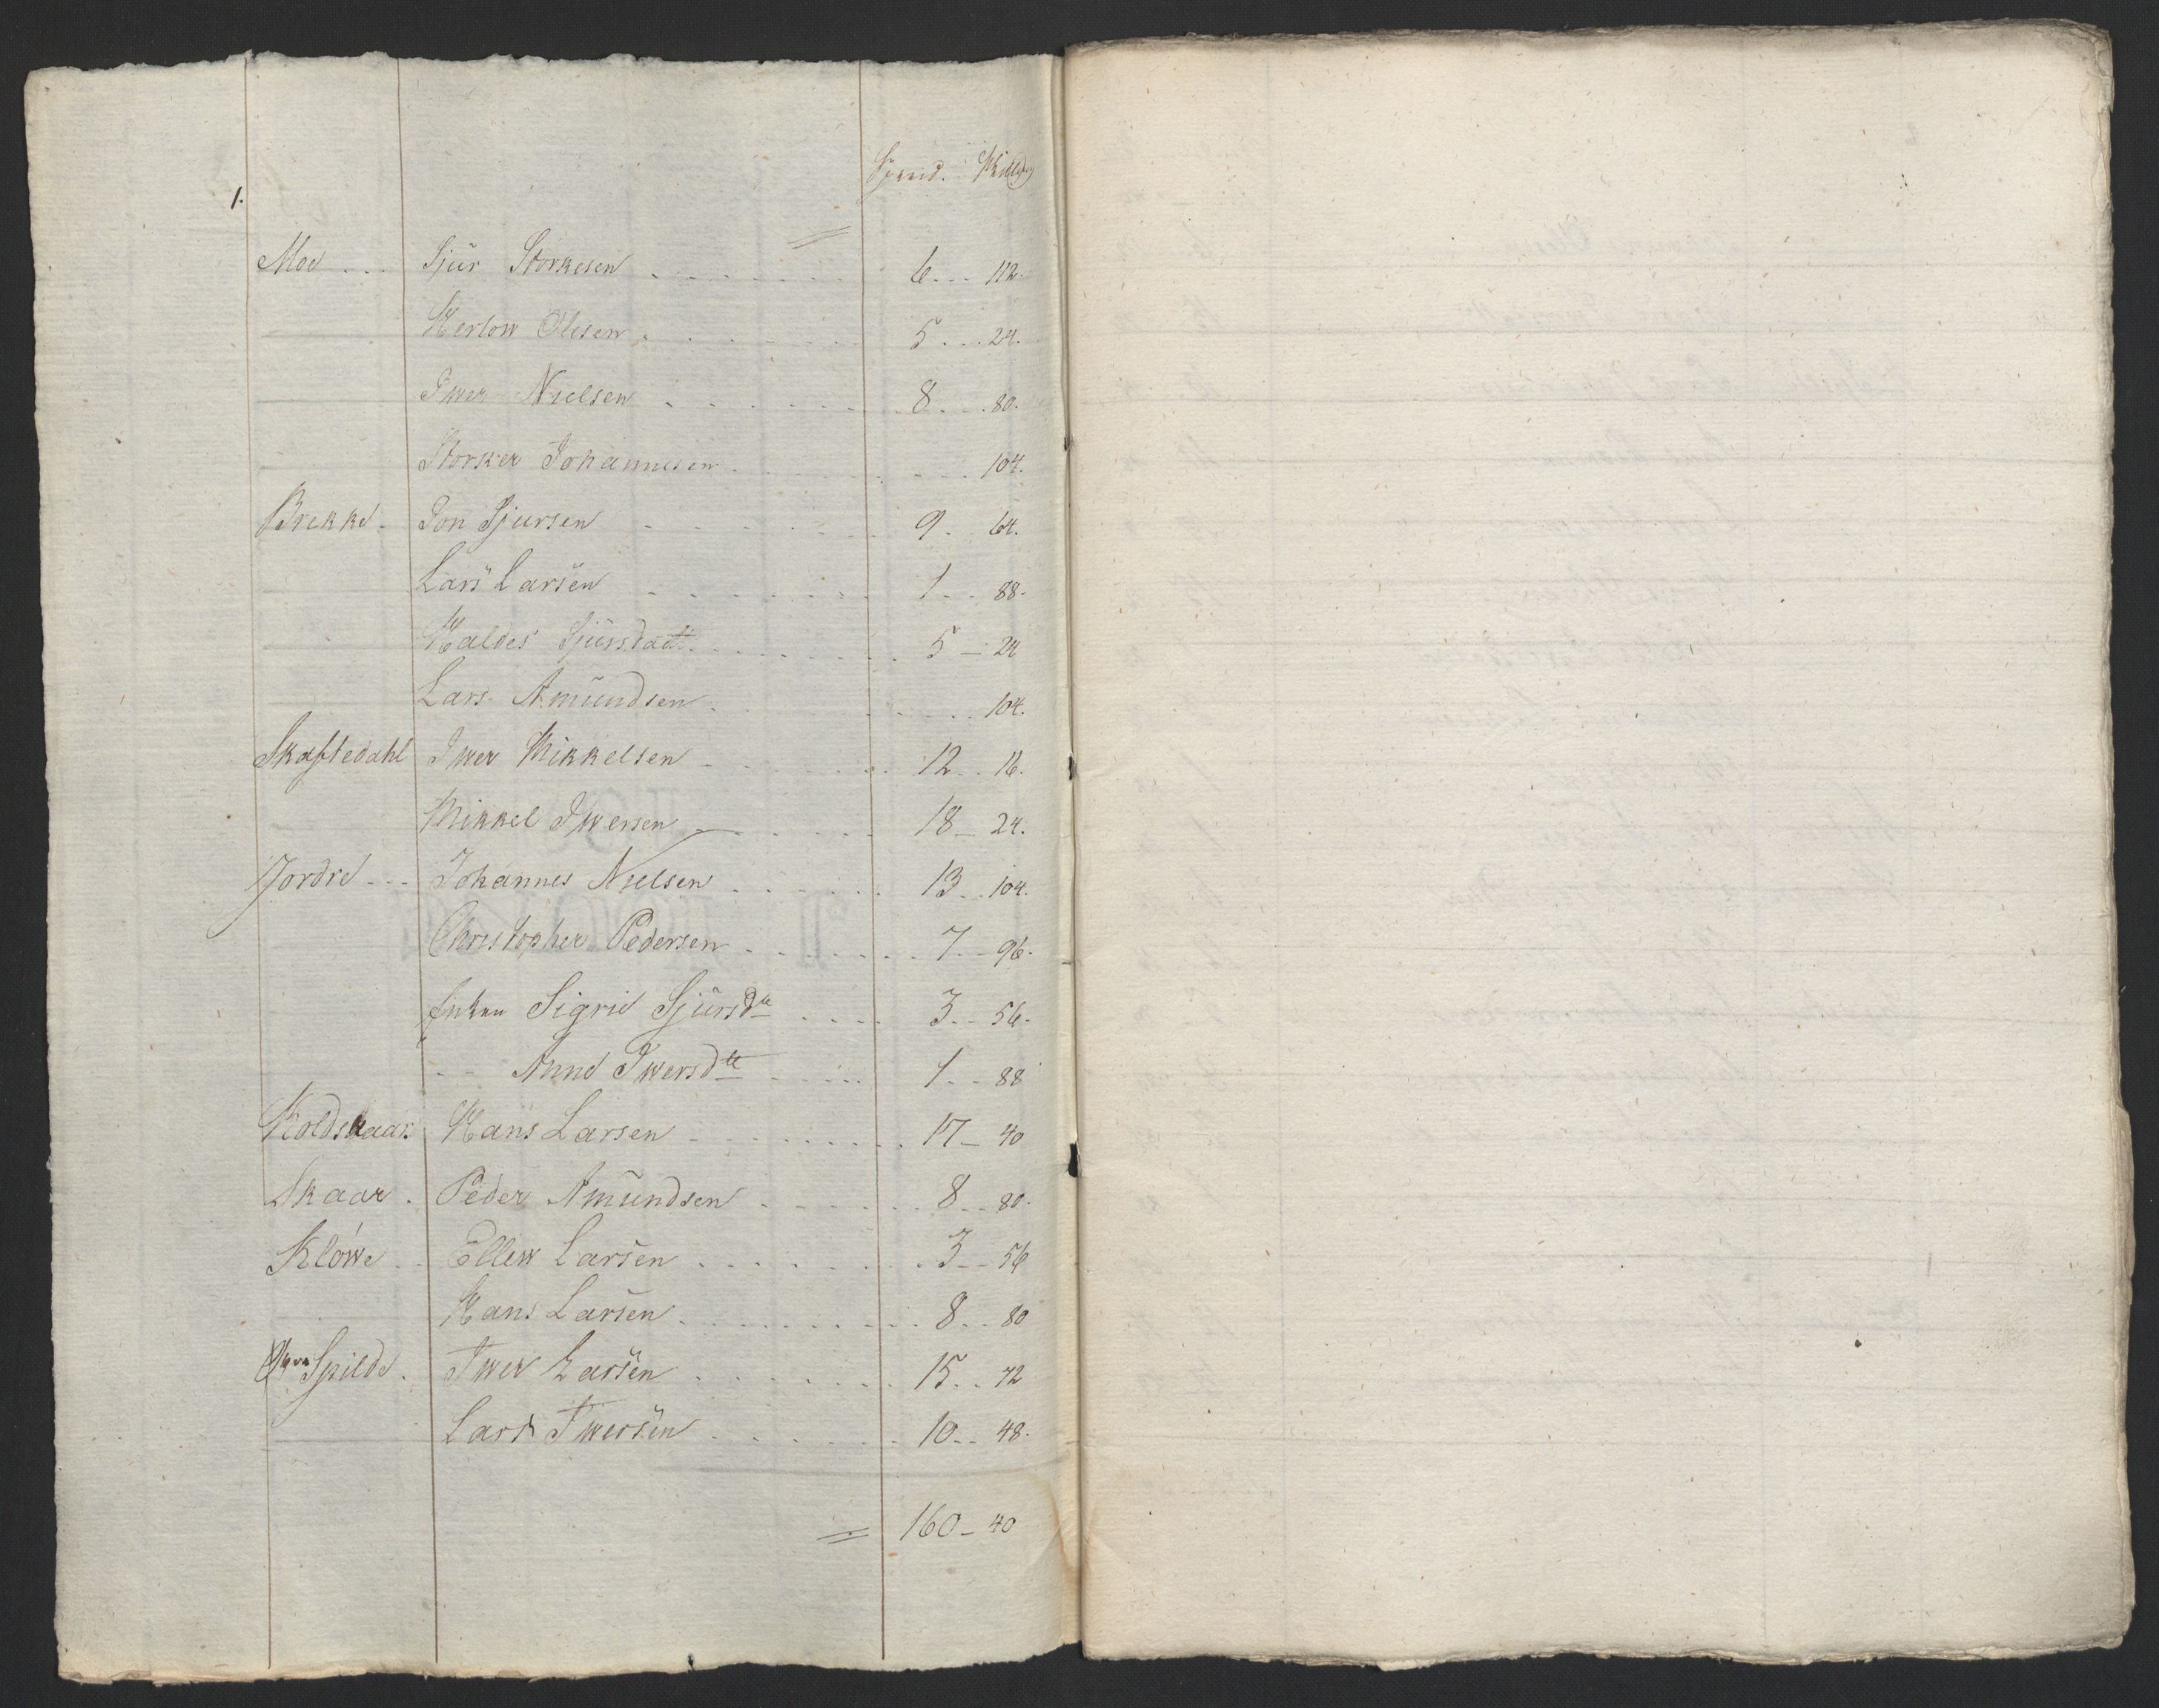 Spend. Skilling
1.
Moe - - - Sjur Storkesen . . . . . . . 6 - - - 112.
Herlow Olesen . . . . . . . 5 . . . 24.
Iwer Nielsen . . . . . . . 8 . . . 80.
Storker Johannesen . . . . . . . 104.
Brekke - Jon Sjursen . . . . . . 9 - - 64.
Lars Larsen . . . . . . . 1 - - 88.
Haldes Sjursdatt. . . . . . . . 5 - 24
Lars Amundsen . . . . . . 104.
Skaftedahl Iwer Mikkelsen - . . . . . . 12 - - 16.
Mikkel Iwersen - . . . . . . 18 - 24.
Jordre - - - Johannes Nielsen . . . . . . 13 . . 104.
Christopher Pedersen . . . . . . . 7 - - 96.
Enken Sigrid Sjursdte . . . . 3 - - 56.
- - Anne Iwersdte . . . . . 1 - - 88
Koldskaar Hans Larsen - . . . . . . . 17 - 40
Skaar . Peder Amundsen . . . . . . 8 - - 80.
Kløwe - - Ellew Larsen . . . . . . . . 3 - - 56
Hans Larsen . . . . . . . . . 8 - - 80
Spilde . Iwer Larsen . . . . . . . 15 . . 72
Lars Iwersen . . . . . . . 10 - - 48.
= 160 - 40